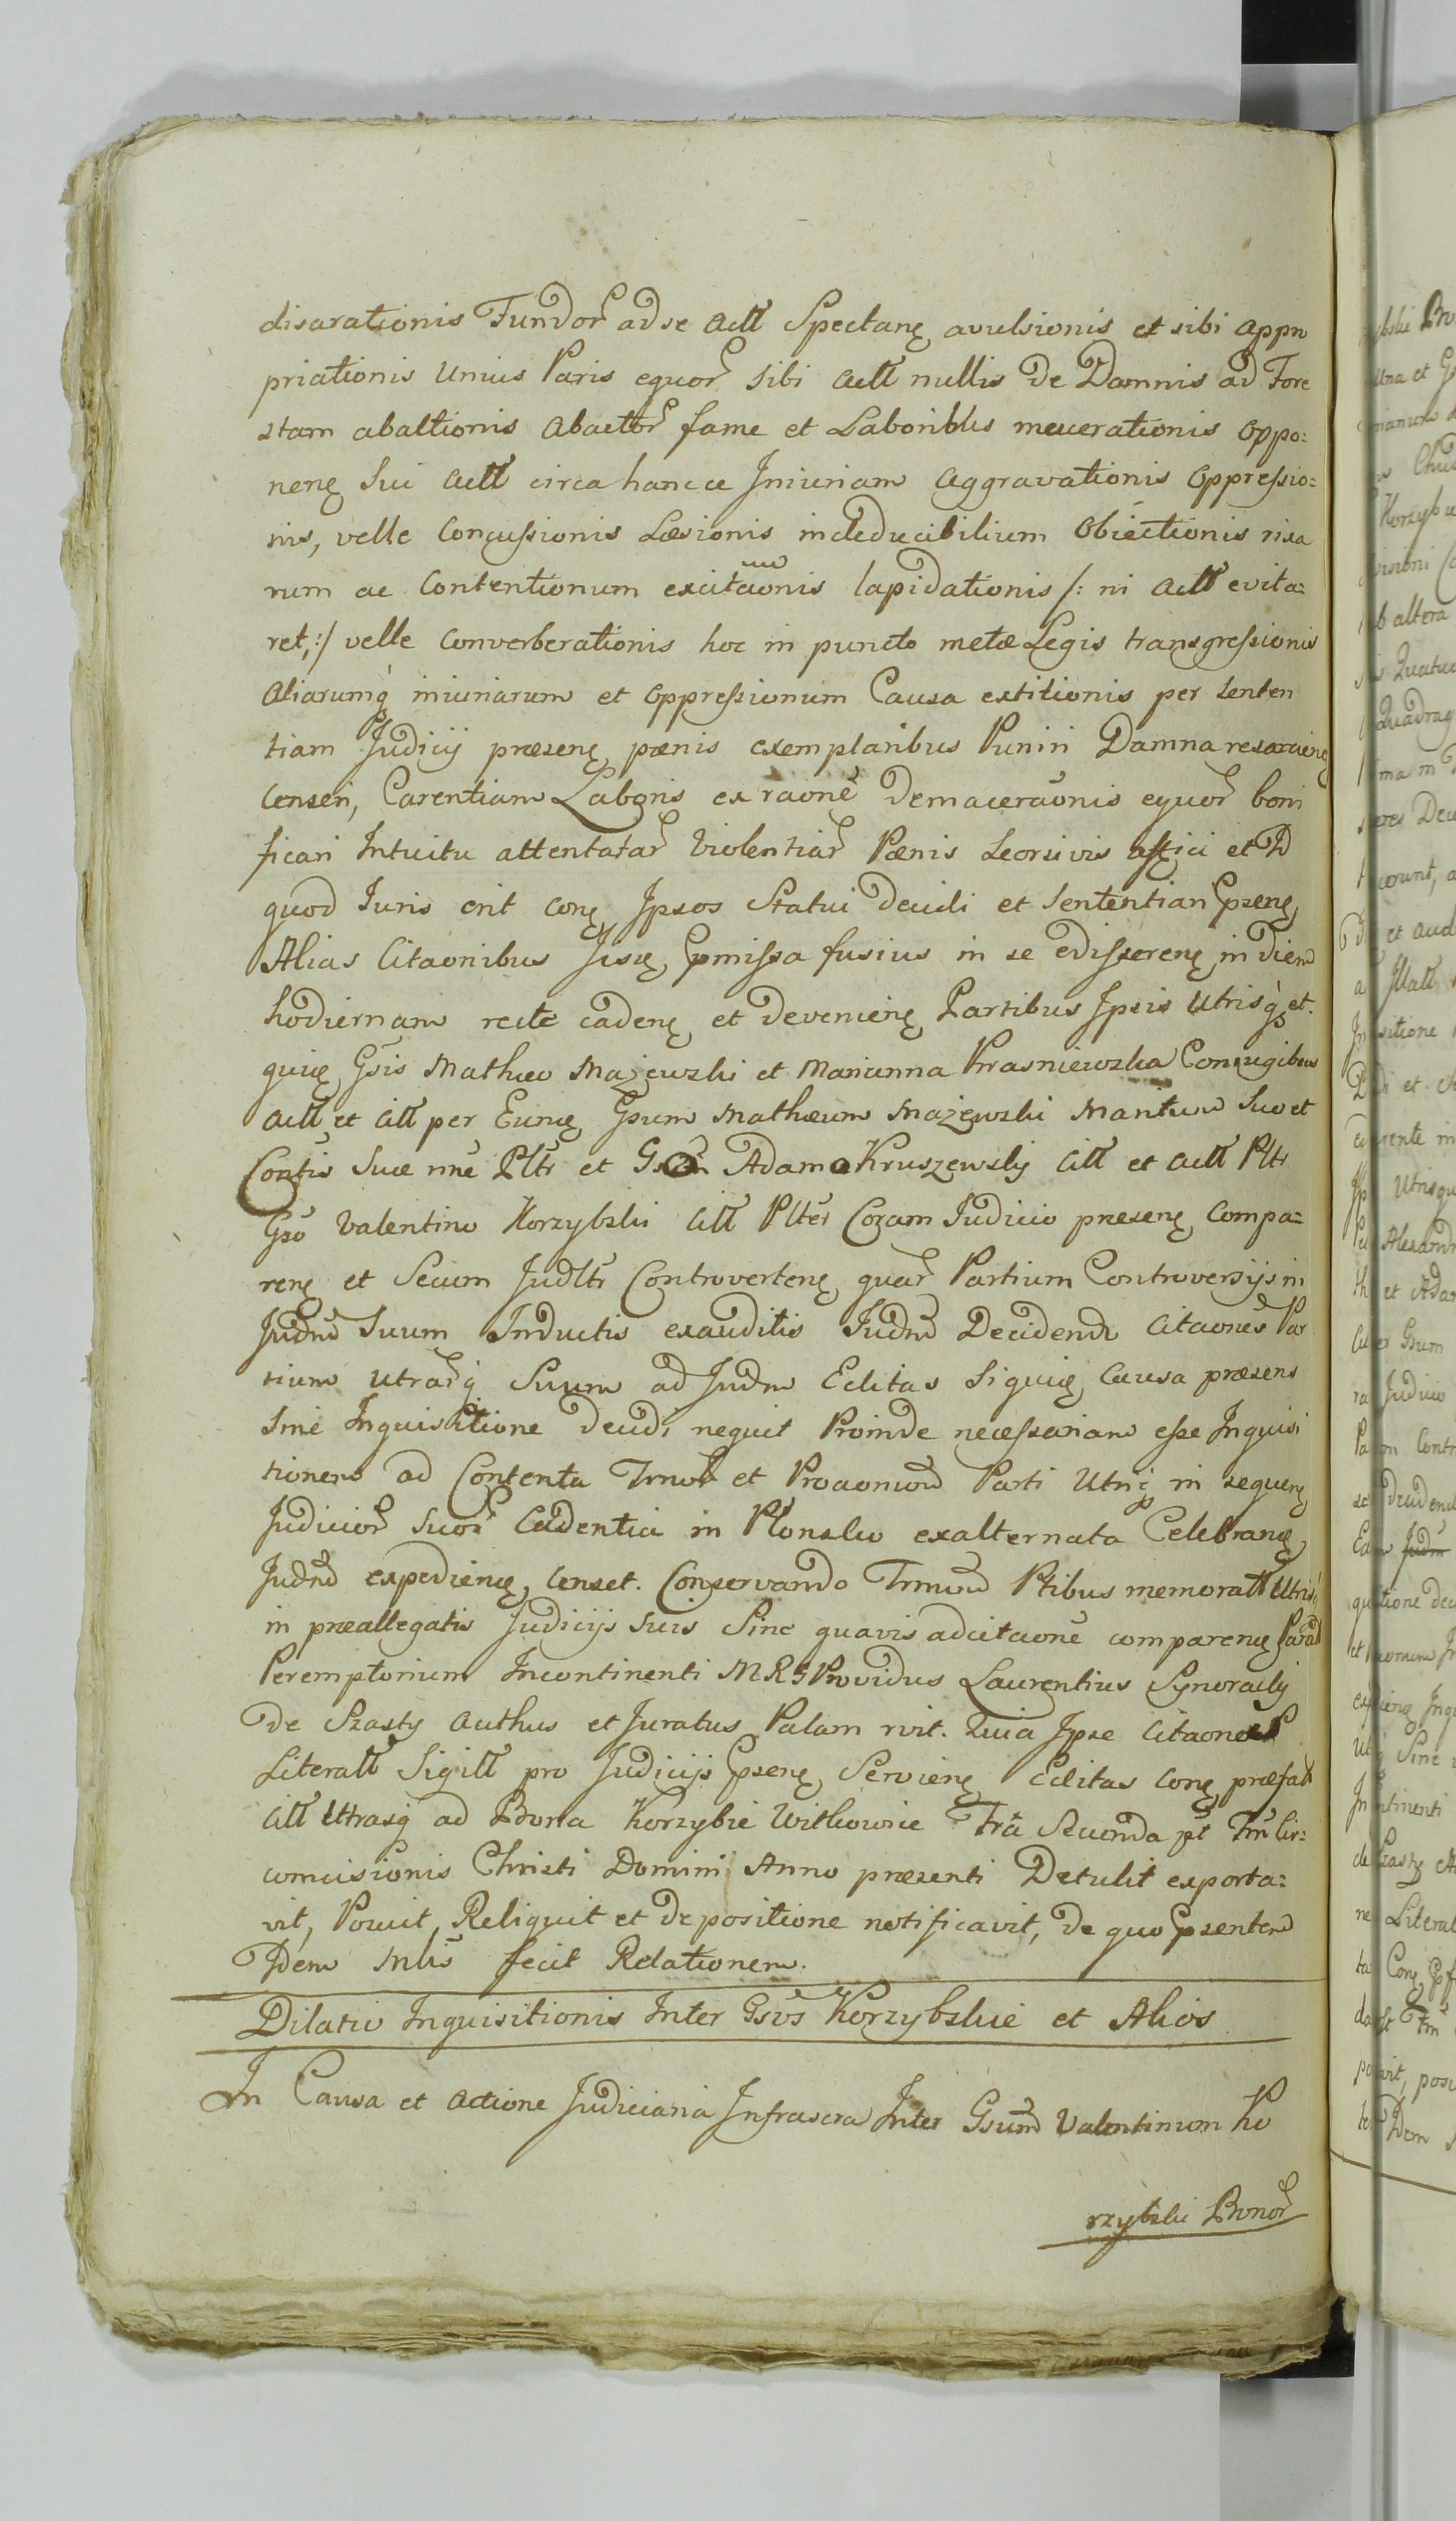 disarationis Fundor ad se Actt Spectanę avulsionis et sibi appro
priationis Unius Paris equor sibi actt nullis De Damnis ad Fore
stam abactionis Abactor fame et Laboribus macerationis oppo:
nenę Sui actt circa hancce Iniuriam Aggravationis oppressio:
nis, velle Concussionis Læsionis indeducibilium Obiectionis rixa
rum ac Contentionum excitaonis lapidationis /: ni actt evita:
ret,:/ velle Converberationis hoc in puncto metæ Legis transgressionis
Aliarumq iniuriarum et oppressionum Causa extitionis per senten
tiam Judicij præsenę pœnis exemplaribus Puniri Damna resarcienę
Censeri, Carentiam Laboris ex raone Demaceraonis equor boni
ficari Intuitu attentatar Violentiar Pœnis Seorsivis affici et Id
quod Iuris erit conę Ipsos Statui Decidi et Sententiari Psenę
Alias Citaonibus Jisdę Pmissa fusius in se edisserenę in Diem
hodiernam recte cadenę et Devenienę Partibus Ipsis Utrisq et
quię Gsis Mathæo Mażewski et Marianna Krasniewska Conjugibus
actt et Citt per Eundę Gsum Mathæum Mażewski Maritum Suo et
Contis Suæ nne Pltr et Adamo Kruszewsky Citt et actt Pltr
Gso Valentino Korzybski Citt Plter Coram Judicio præsenę Compa:
renę et Secum Judltr Controvertenę quar Partium Controversijs in
Judm Suum Inductis exauditis Judm Decidendo Citaones Par
tium utrarq Suum ad Judm Editas Siquię Causa præsens
sine Inquisitione decidi nequit Proinde necessariam esse Inquisi
tionem ad Contenta Trmor et Proaomum Parti Utriq in sequenę
Judicior Suor Cadentia in Płonsko exalternata Celebranę
Judm expedienę censet. Conservando Trmum Ptibus memoratt Utrisq
in præallegatis Judicijs suis Sine quavis adcitaone comparenę Parat
Peremptorium Incontinenti MRS Providus Laurentius Synoracky
De Szasty Authus et Juratus Palam rvit. Quia Ipse Citaones
Literatt Sigitt pro Judicijs Psenę Servienę Editas conę præfat
Citt Utrasq ad Bona Korzybie Witkowie Fra Secunda pt Fm Cir:
cumcisionis Christi Domini Anno præsenti Detulit exporta:
vit, Posuit, Reliquit et de positione notificavit, De quo Psentem
Idem Mlis fecit Relationem.
Dilatio Inquisitionis Inter Gsos Korzybskie et Alios
In Causa et Actione Judiciaria Infrascra Inter Gsum Valentinum Ko
rzybski Bonor